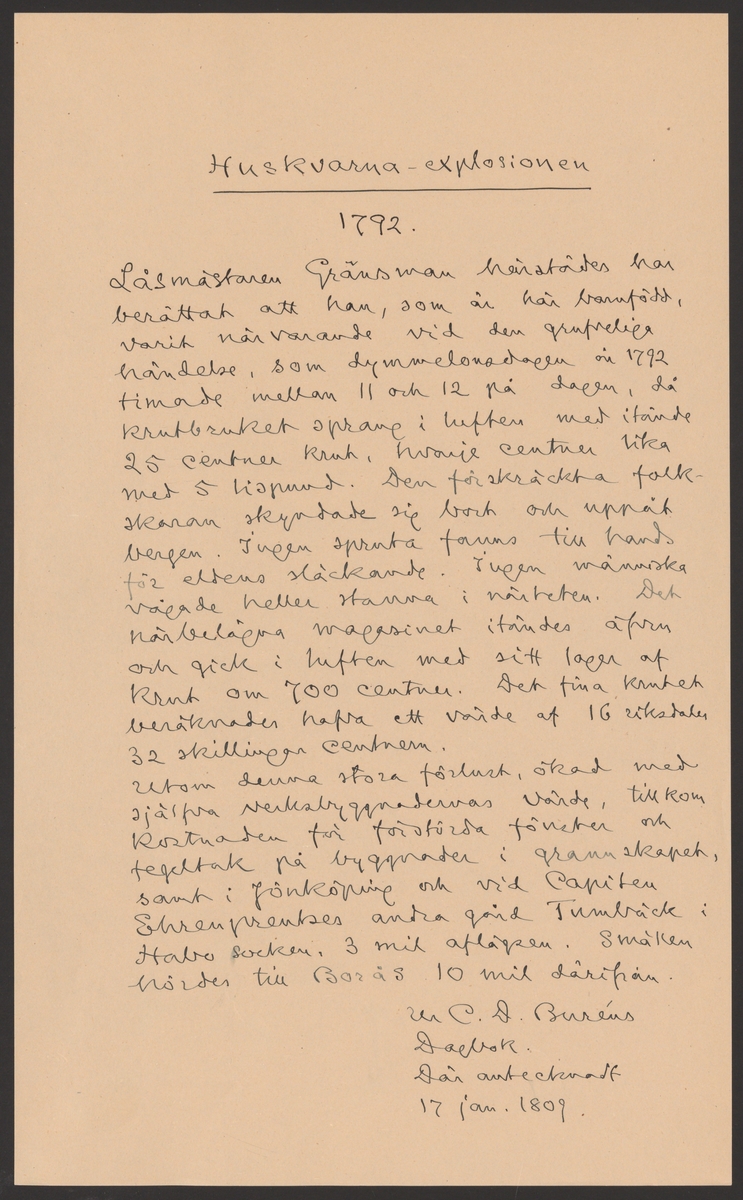 Huskvarna-explosionen
1792.
Låsmästaren Gränsman härstädes har
berättat att han, som är här barnfödd,
varit närvarande vid den grufveliga
händelse, som dymmelonsdagen år 1792
timade mellan 11 och 12 på dagen, då
krutbruket sprang i luften med itände
25 centner krut, hvarje centner lika
med 5 lispund. Den förskräckta folk-
skaran skyndade sig bort och uppåt
bergen. Ingen spruta fanns till hands
för eldens släckande. Ingen människa
vågade heller stanna i närheten. Det
närbelägna magasinet itändes äfven
och gick i luften med sitt lager af
krut om 700 centner. Det fina krutet
beräknades hafva ett värde af 16 riksdaler
32 skillingar centnern.
Utom denna stora förlust, ökad med
själfva verksbyggnadernas värde, tillkom
kostnaden för förstörda fönster och
tegeltak på byggnader i grannskapet,
samt i Jönköping och vid Capiten
Ehrenpreutzes andra gård Tumbäck i
Habo socken, 3 mil aflägsen. Smällen
hördes till Borås 10 mil därifrån.
Ur C. D. Buréns
Dagbok.
Där antecknadt
17 jan. 1809.